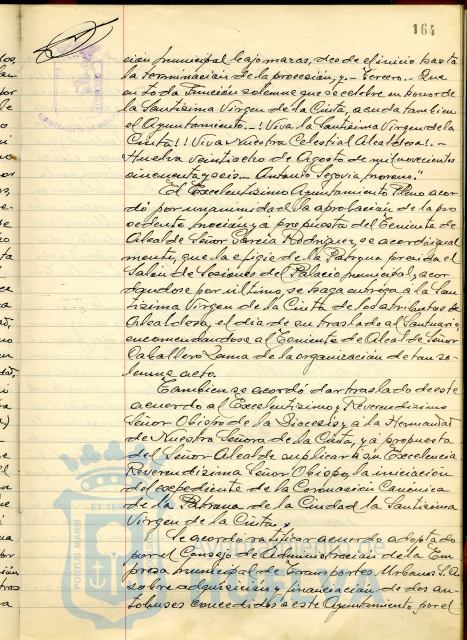 164
ción municipal bajo mazas, desde el inicio hasta
la terminación de la procesión, y.- Tercero.- Que
en toda función solemne que se celebre en honor de
la Santísima Virgen de la Cinta, acuda tambien
el Ayuntamiento.- ¡Viva la Santísima Virgen de la
Cinta!! ¡Viva Nuestra Celestial Alcaldesa!.-
Huelva veintiocho de Agosto de mil novecientos
cincuenta y seis.- Antonio Segovia Moreno."
El Excelentísimo Ayuntamiento Pleno acor-
dó por unanimidad la aprobación de la pre
cedente moción, y a propuesta del Teniente de
Alcalde Señor García Rodriguez, se acordó igual
mente, que la efigie de la Patrona presida el
Salón de Sesiones del Palacio municipal, acor
dandose por ultimo, se haga entrega a la San
tísima Virgen de la Cinta de los atributos de
Alcaldesa, el día de su traslado al Santuario,
encomendandose al Teniente de Alcalde Señor
Caballero de la organización de tan so-
lemne acto.
Tambien se acordó dar traslado de este
acuerdo al Excelentísimo y Reverendísimo
Señor Obispo de la Diocesis y a la Hermandad
de Nuestra Señora de la Cinta, y a propuesta
del Señor Alcalde suplicar a Su Excelencia
Reverendisima Señor Obispo, la iniciación
del expediente de la Coronación Canónica
de la Patrona de la Ciudad la Santísima
Virgen de la Cinta, y
Se acordó ratificar acuerdo adoptado
por el Consejo de Administración de la Em
presa municipal de Transportes Urbanos S.A.
sobre adquisición y financiación de dos au-
tobuses concedidos a este Ayuntamiento, por el
PORTUS MARIS
ET TE